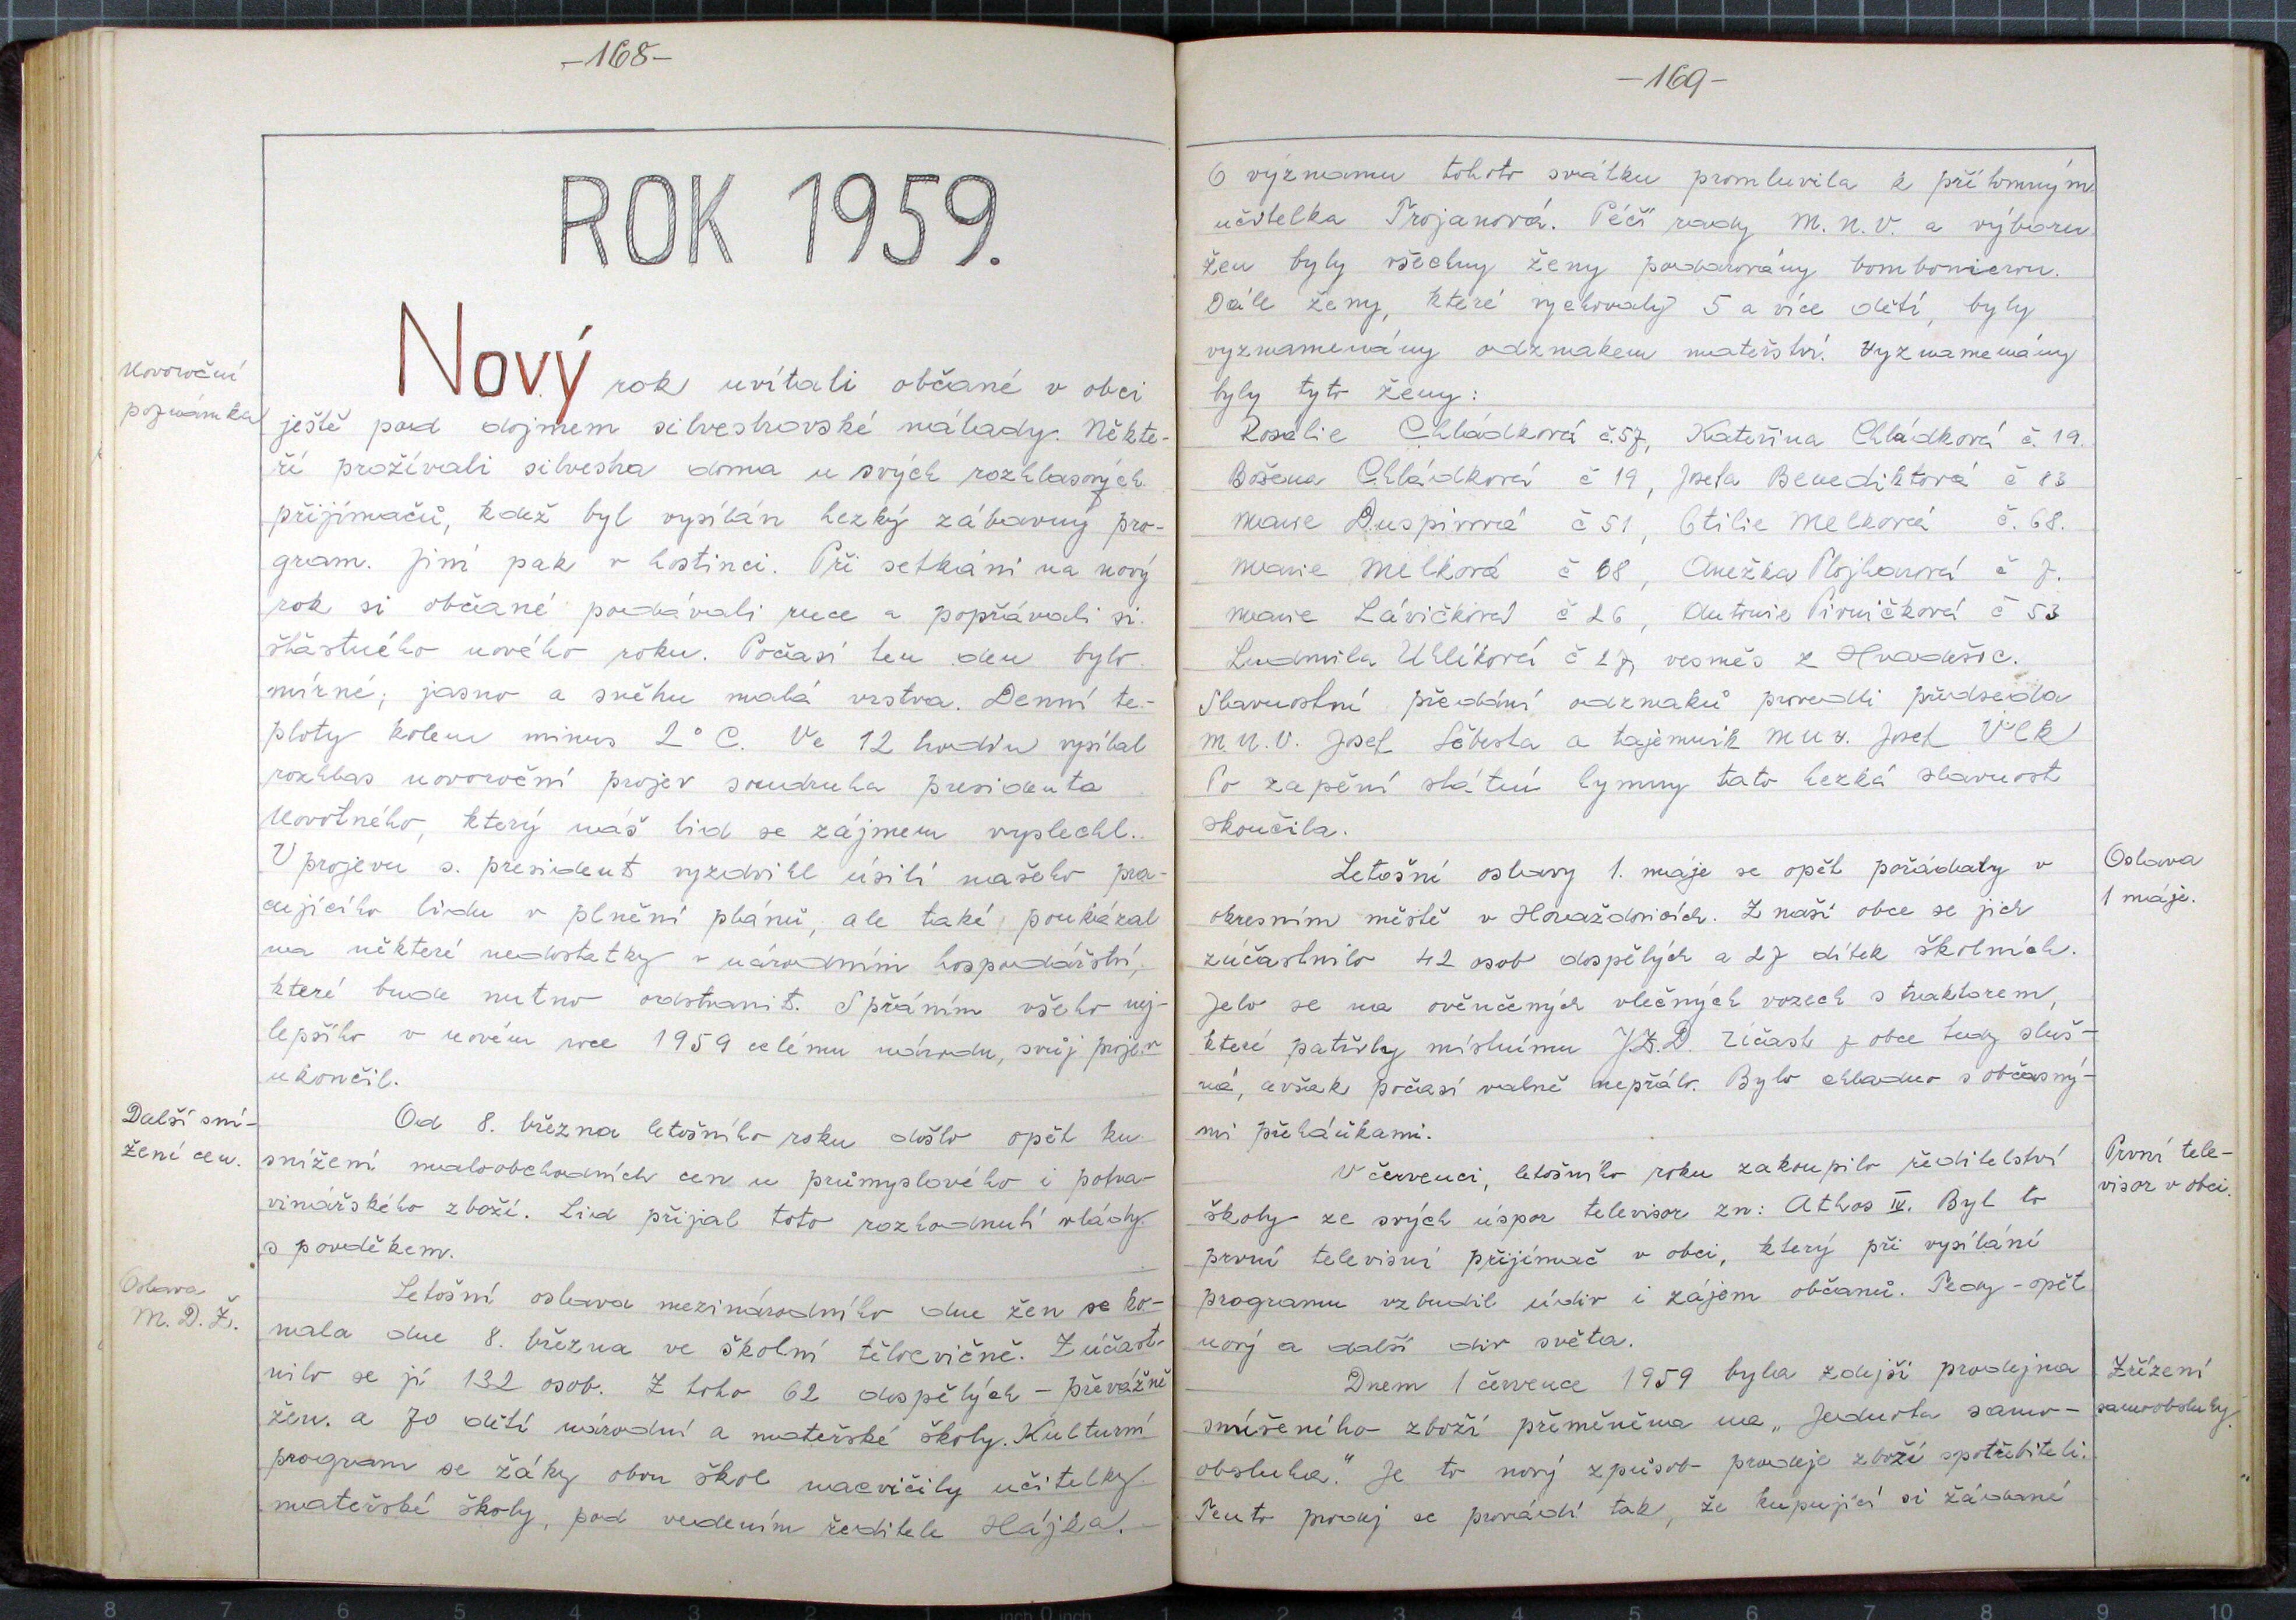 -168-
ROK 1959.
Novoroční
poznámka
Nový rok uvítali občané v obci
ještě pod dojmem silvestrovské nálady. Někte-
ří prožívali silvestra doma u svých rozhlasových
přijímačů, kdež byl vysílán hezký zábavný pro-
gram. Jiní pak v hostinci. Při setkání na nový
rok si občané podávali ruce a popřávali si
šťastného nového roku. Počasí ten den bylo
mírné; jasno a sněhu malá vrstva. Denní te-
ploty kolem minus 2° C. Ve 12 hodin vysílal
rozhlas novoroční projev soudruha presidenta
Novotného, který náš lid se zájmem vyslechl.
V projevu s. president vyzdvihl úsilí našeho pra-
cujícího lidu v plnění plánů, ale také poukázal
na některé nedostatky v národním hospodářství,
které bude nutno odstranit. S přáním všeho nej-
lepšího v novém roce 1959 celému národu, svůj projev
ukončil.
Další sní-
žení cen.
Od 8. března letošního roku došlo opět ku
snížení maloobchodních cen u průmyslového i potra-
vinářského zboží. Lid přijal toto rozhodnutí vlády
s povděkem.
Oslava
M. D. Ž.
Letošní oslava mezinárodního dne žen se ko-
nala dne 8. března ve školní tělocvičně. Zúčast-
nilo se jí 132 osob. Z toho 62 dospělých - převážně
žen. a 70 dětí národní a mateřské školy. Kulturní
program se žáky obou škol nacvičily učitelky
mateřské školy, pod vedením ředitele Hájka.-
-169-
O významu tohoto svátku promluvila k přítomným
učitelka Trojanová. Péčí rady M. N. V. a výboru
žen byly všechny ženy podarovány bombonierou.
Dále ženy, které vychovaly 5 a více dětí, byly
vyznamenány odznakem mateřství. Vyznamenány
byly tyto ženy:
Rosálie Chládková č.57, Kateřina Chládková č. 19.
Božena Chládková č 19, Josefa Benediktová č 83
Marie Duspivová č 51, Otilie Melková č. 68.
Marie Melková č 68, Anežka Plojharová č 7.
Marie Lávičková č 26, Antonie Pivničková č 53
Ludmila Uhlíková č 27, vesměs z Hradešic.
Slavnostní předání odznaků provedli předseda
M. N. V. Josef Šebesta a tajemník MNV. Josef Vlk
Po zapění státní hymny tato hezká slavnost
skončila.
Oslava
1 máje.
Letošní oslavy 1. máje se opět pořádaly v
okresním městě v Horažďovicích. Z naší obce se jich
zúčastnilo 42 osob dospělých a 27 dítek školních.
Jelo se na ověnčených vlečných vozech s traktorem,
které patřily místnímu J.Z.D. Účast z obce tedy sluš-
ná, avšak počasí valně nepřálo. Bylo chladno s občasný-
mi přeháňkami.
První tele-
visor v obci.
V červenci, letošního roku zakoupilo ředitelství
školy ze svých úspor televisor zn: Athos IV. Byl to
první televisní přijímač v obci, který při vysílání
programu vzbudil údiv i zájem občanů. Tedy - opět
nový a další div světa.
Zřízení
samoobsluhy.
Dnem 1 července 1959 byla zdejší prodejna
smíšeného zboží přeměněna na „Jednota samo-
obsluha." Je to nový způsob prodeje zboží spotřebiteli.
Tento prodej se provádí tak, že kupující si žádané